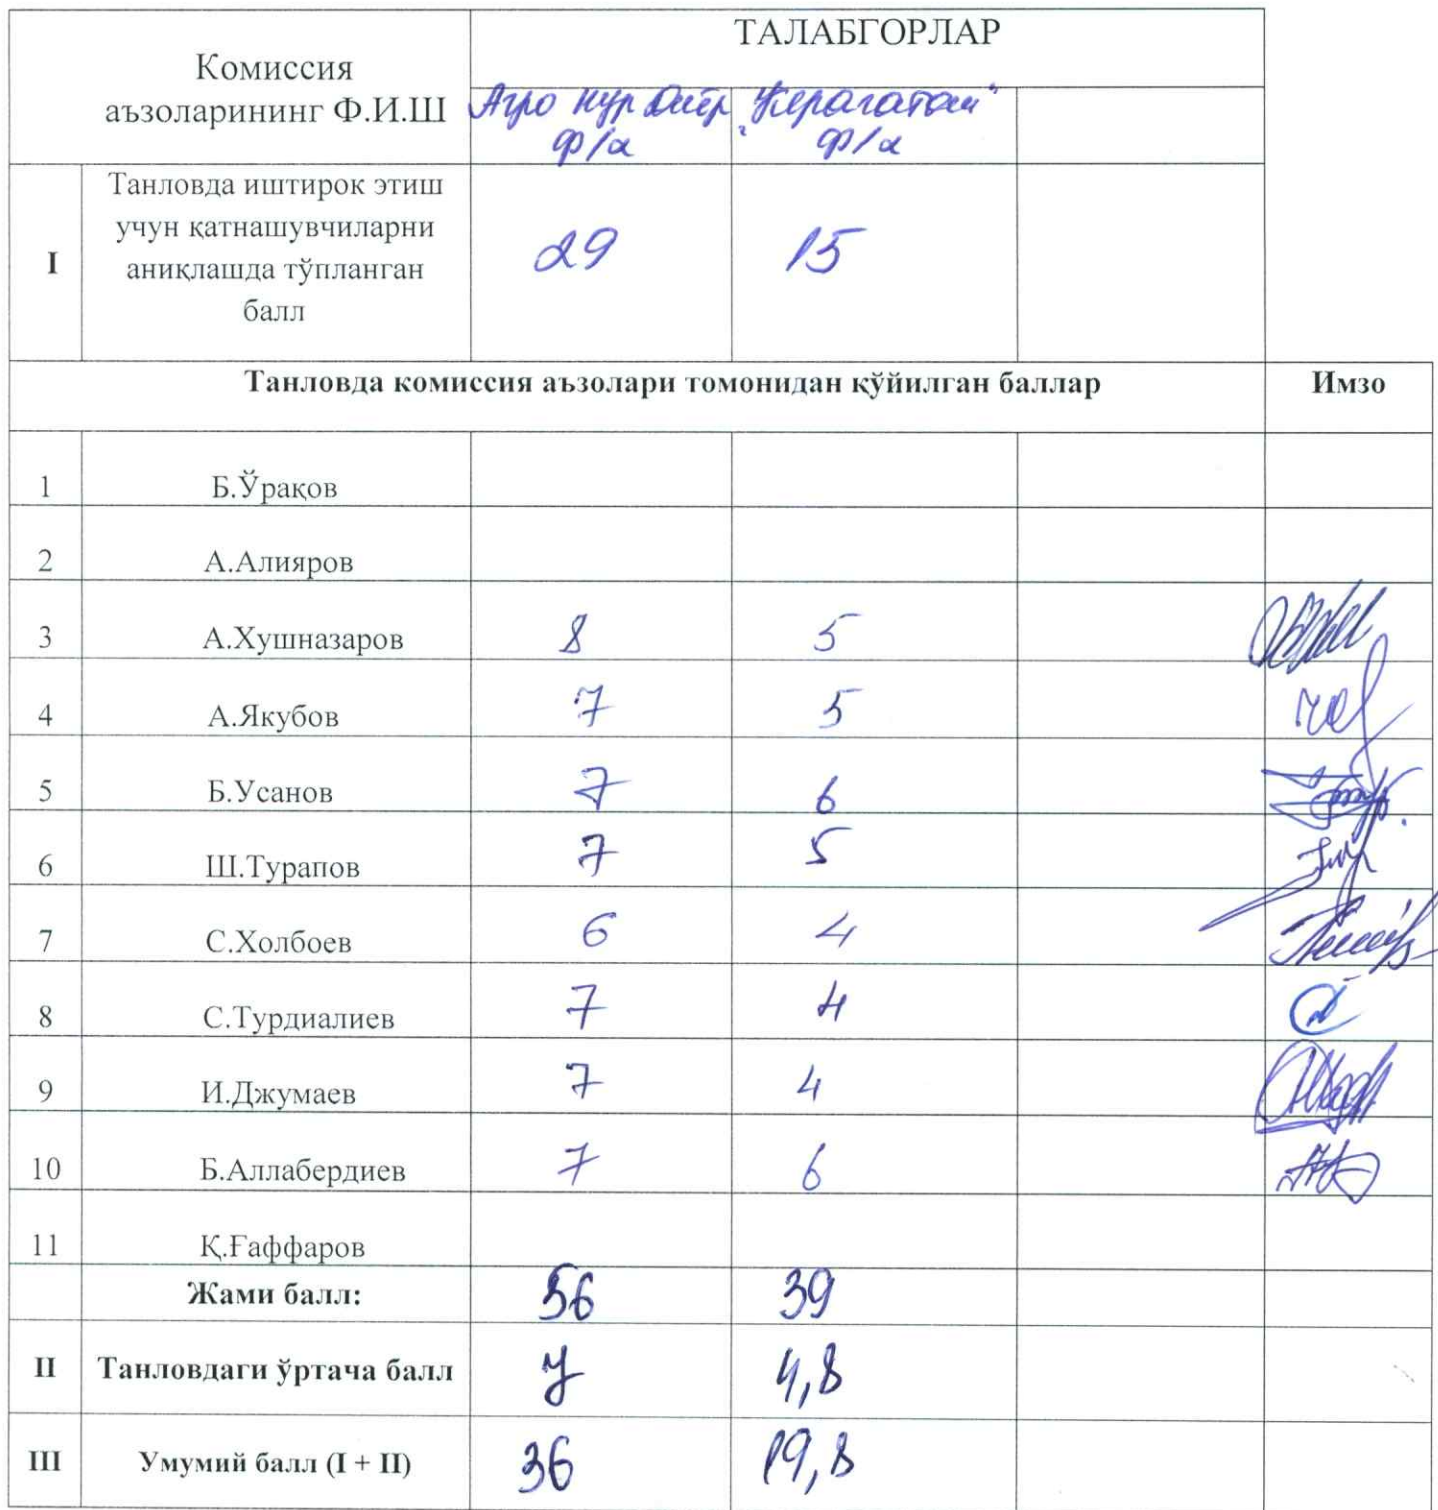 ТАЛАБГОРЛАР
Комиссия
аъзоларининг Ф.И.Ш
Агро нур
ф/х
ф/х
I
Танловда иштирок этиш
учун қатнашувчиларни
аниқлашда тўпланган
балл
29 15
Танловда комиссия аъзолари томонидан қўйилган баллар Имзо
1 Б.Ўрақов
2 А.Алияров
3 А.Хушназаров 8 5
4 А.Якубов 7 5
5 Б.Усанов 7 6
6 Ш.Турапов 7 5
7 С.Холбоев 6 4
8 С.Турдиалиев 7 4
9 И.Джумаев 7 4
10 Б.Аллабердиев 7 6
11 Қ.Ғаффаров
Жами балл: 56 39
II Танловдаги ўртача балл 7 4,8
III Умумий балл (I + II) 36 19,8